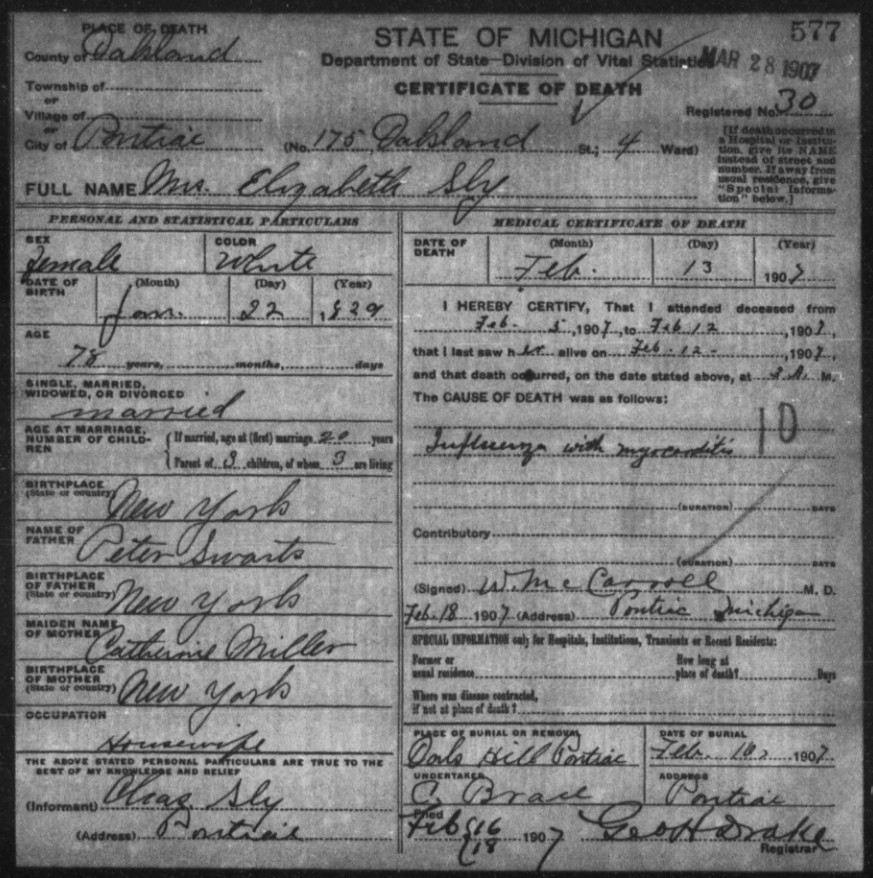 577
PLACE OF DEATH
STATE OF MICHIGAN
County of Oakland
Department of State—Division of Vital Statistics
MAR 28 1907
Township of
or
CERTIFICATE OF DEATH
Registered No. 30
Village of
or
City of Pontiac (No. 175 Oakland St.; 4 Ward)
[If death occurred in
a Hospital or Institu-
tion, give its NAME
instead of street and
number. If away from
usual residence, give
"Special Informa-
tion" below.]
FULL NAME Mrs. Elizabeth Sly
PERSONAL AND STATISTICAL PARTICULARS
SEX
Female
COLOR
White
DATE OF
BIRTH
(Month) (Day) (Year)
Jan. 22, 1829
AGE
78 years, months, days
SINGLE, MARRIED,
WIDOWED, OR DIVORCED
married
AGE AT MARRIAGE,
NUMBER OF CHILD-
REN
If married, age at (first) marriage 20 years
Parent of 3 children, of whom 3 are living
BIRTHPLACE
(State or country)
New York
NAME OF
FATHER
Peter Swarts
BIRTHPLACE
OF FATHER
(State or country)
New York
MAIDEN NAME
OF MOTHER
Catherine Miller
BIRTHPLACE
OF MOTHER
(State or country)
New York
OCCUPATION
Housewife
THE ABOVE STATED PERSONAL PARTICULARS ARE TRUE TO THE
BEST OF MY KNOWLEDGE AND BELIEF
(Informant) Chas. Sly
(Address) Pontiac
MEDICAL CERTIFICATE OF DEATH
DATE OF
DEATH
(Month) (Day) (Year)
Feb. 13 1907
I HEREBY CERTIFY, That I attended deceased from
Feb. 5, 1907, to Feb 12, 1907,
that I last saw her alive on Feb. 12 - , 1907,
and that death occurred, on the date stated above, at 3 A. M.
The CAUSE OF DEATH was as follows:
10
Influenza with myocarditis
(DURATION) DATE
Contributory
(DURATION) DATE
(Signed) W. McCarroll M. D.
Feb. 18 1907 (Address) Pontiac Michigan
SPECIAL INFORMATION only for Hospitals, Institutions, Transients or Recent Residents:
Former or
usual residence
How long at
place of death? Days
Where was disease contracted,
if not at place of death?
PLACE OF BURIAL OR REMOVAL
Oak Hill Pontiac
DATE OF BURIAL
Feb. 16, 1907
UNDERTAKER
C. Brace
ADDRESS
Pontiac
Filed
Feb 16
18 1907 Geo H Drake
Registrar